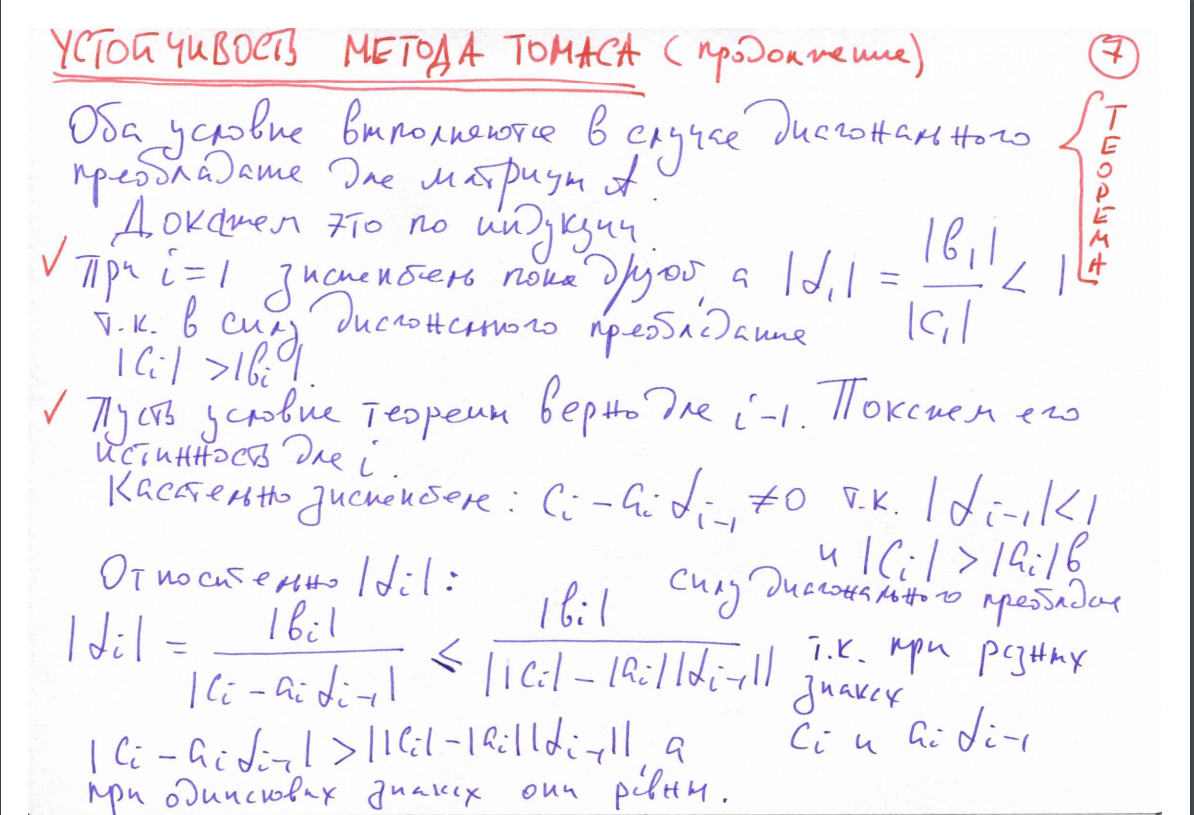 УСТОЙЧИВОСТЬ МЕТОДА ТОМАСА (продолжение) 7
ТЕОРЕМА
Оба условие выполняются в случае диагонального
преобладание для матрицы A.
Докажем это по индукции.
✓ При i=1 знаменатель пока другой, а |α₁| = |b₁| / |c₁| < 1
т.к. в силу диагонального преобладание
|cᵢ| > |bᵢ|.
✓ Пусть условие теоремы верно для i-1. Покажем его
истинность для i.
Касательно знаменателе: cᵢ - aᵢ αᵢ₋₁ ≠ 0 т.к. |αᵢ₋₁| < 1
и |cᵢ| > |aᵢ| в
силу диагонального преоблада
Относительно |αᵢ|:
|αᵢ| = |bᵢ| / |cᵢ - aᵢ αᵢ₋₁| ≤ |bᵢ| / ||cᵢ| - |aᵢ||αᵢ₋₁|| т.к. при разных
знаках
cᵢ и aᵢ αᵢ₋₁
|cᵢ - aᵢ αᵢ₋₁| > ||cᵢ| - |aᵢ||αᵢ₋₁||, а
при одинаковых знаках они равны.